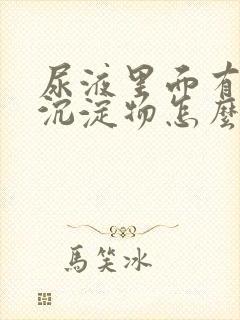 尿液里面有
沉淀物怎麽
馬笑冰